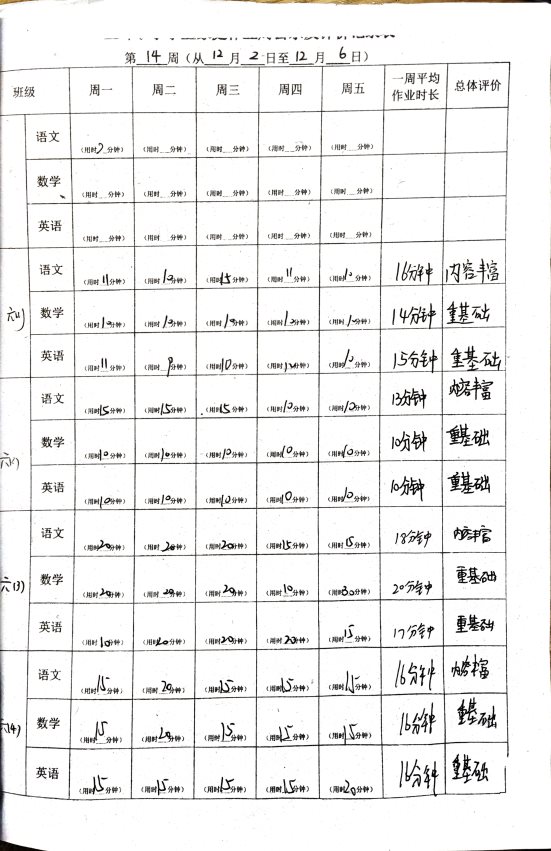 第 14 周（从 12 月 2 日至 12 月 6 日）
班级 周一 周二 周三 周四 周五 一周平均作业时长 总体评价
语文 （用时 分钟） （用时__分钟） （用时__分钟） （用时__分钟） （用时__分钟）
数学 （用时__分钟） （用时__分钟） （用时__分钟） （用时__分钟） （用时__分钟）
英语 （用时__分钟） （用时__分钟） （用时__分钟） （用时__分钟） （用时__分钟）
语文 （用时11分钟） （用时10分钟） （用时15分钟） （用时11分钟） （用时10分钟） 16分钟 内容丰富
六(1) 数学 （用时10分钟） （用时10分钟） （用时10分钟） （用时10分钟） （用时10分钟） 14分钟 重基础
英语 （用时11分钟） （用时9分钟） （用时10分钟） （用时10分钟） （用时10分钟） 15分钟 重基础
语文 （用时15分钟） （用时15分钟） （用时15分钟） （用时10分钟） （用时10分钟） 13分钟 内容丰富
数学 （用时10分钟） （用时10分钟） （用时10分钟） （用时10分钟） （用时10分钟） 10分钟 重基础
英语 （用时10分钟） （用时10分钟） （用时10分钟） （用时10分钟） （用时10分钟） 10分钟 重基础
语文 （用时20分钟） （用时20分钟） （用时20分钟） （用时15分钟） （用时15分钟） 18分钟 内容丰富
六(3) 数学 （用时20分钟） （用时20分钟） （用时20分钟） （用时10分钟） （用时30分钟） 20分钟 重基础
英语 （用时10分钟） （用时20分钟） （用时20分钟） （用时20分钟） （用时15分钟） 17分钟 重基础
语文 （用时15分钟） （用时20分钟） （用时15分钟） （用时15分钟） （用时15分钟） 16分钟 内容丰富
六(4) 数学 （用时15分钟） （用时20分钟） （用时15分钟） （用时15分钟） （用时15分钟） 16分钟 重基础
英语 （用时15分钟） （用时15分钟） （用时15分钟） （用时15分钟） （用时20分钟） 16分钟 重基础